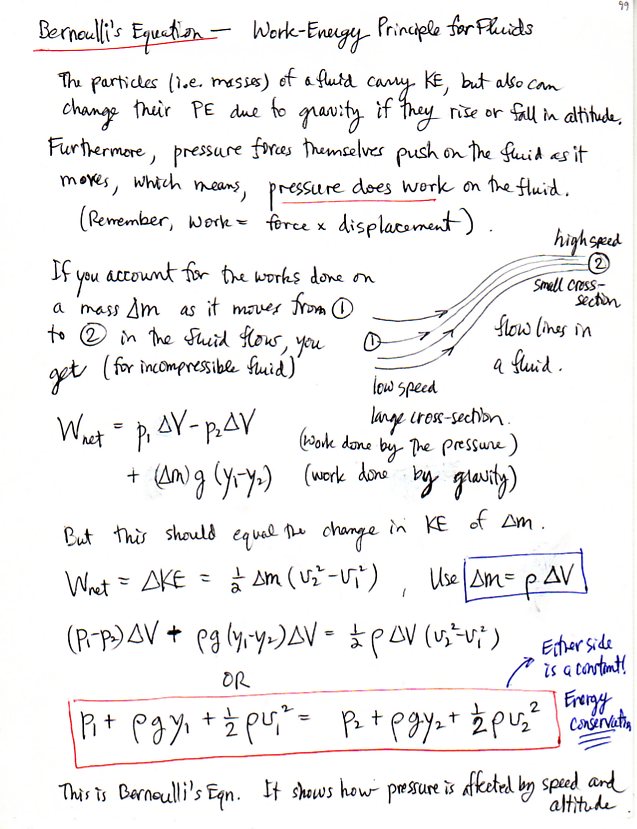 99
Bernoulli's Equation — Work-Energy Principle for Fluids
The particles (i.e. masses) of a fluid carry KE, but also can
change their PE due to gravity if they rise or fall in altitude.
Furthermore, pressure forces themselves push on the fluid as it
moves, which means, pressure does work on the fluid.
(Remember, Work = force × displacement).
high speed
②
small cross-
section
If you account for the works done on
a mass Δm as it moves from ①
to ② in the fluid flows, you
get (for incompressible fluid)
①
flow lines in
a fluid.
low speed
large cross-section.
W_net = p₁ ΔV - p₂ ΔV (work done by the pressure)
+ (Δm) g (y₁-y₂) (work done by gravity)
But this should equal the change in KE of Δm.
W_net = ΔKE = ½ Δm (v₂² - v₁²), Use Δm = ρ ΔV
(p₁-p₂) ΔV + ρg (y₁-y₂) ΔV = ½ ρ ΔV (v₂² - v₁²)
OR
Either side
is a constant!
p₁ + ρ g y₁ + ½ ρ v₁² = p₂ + ρ g y₂ + ½ ρ v₂²
Energy
conservation
This is Bernoulli's Eqn. It shows how pressure is affected by speed and
altitude